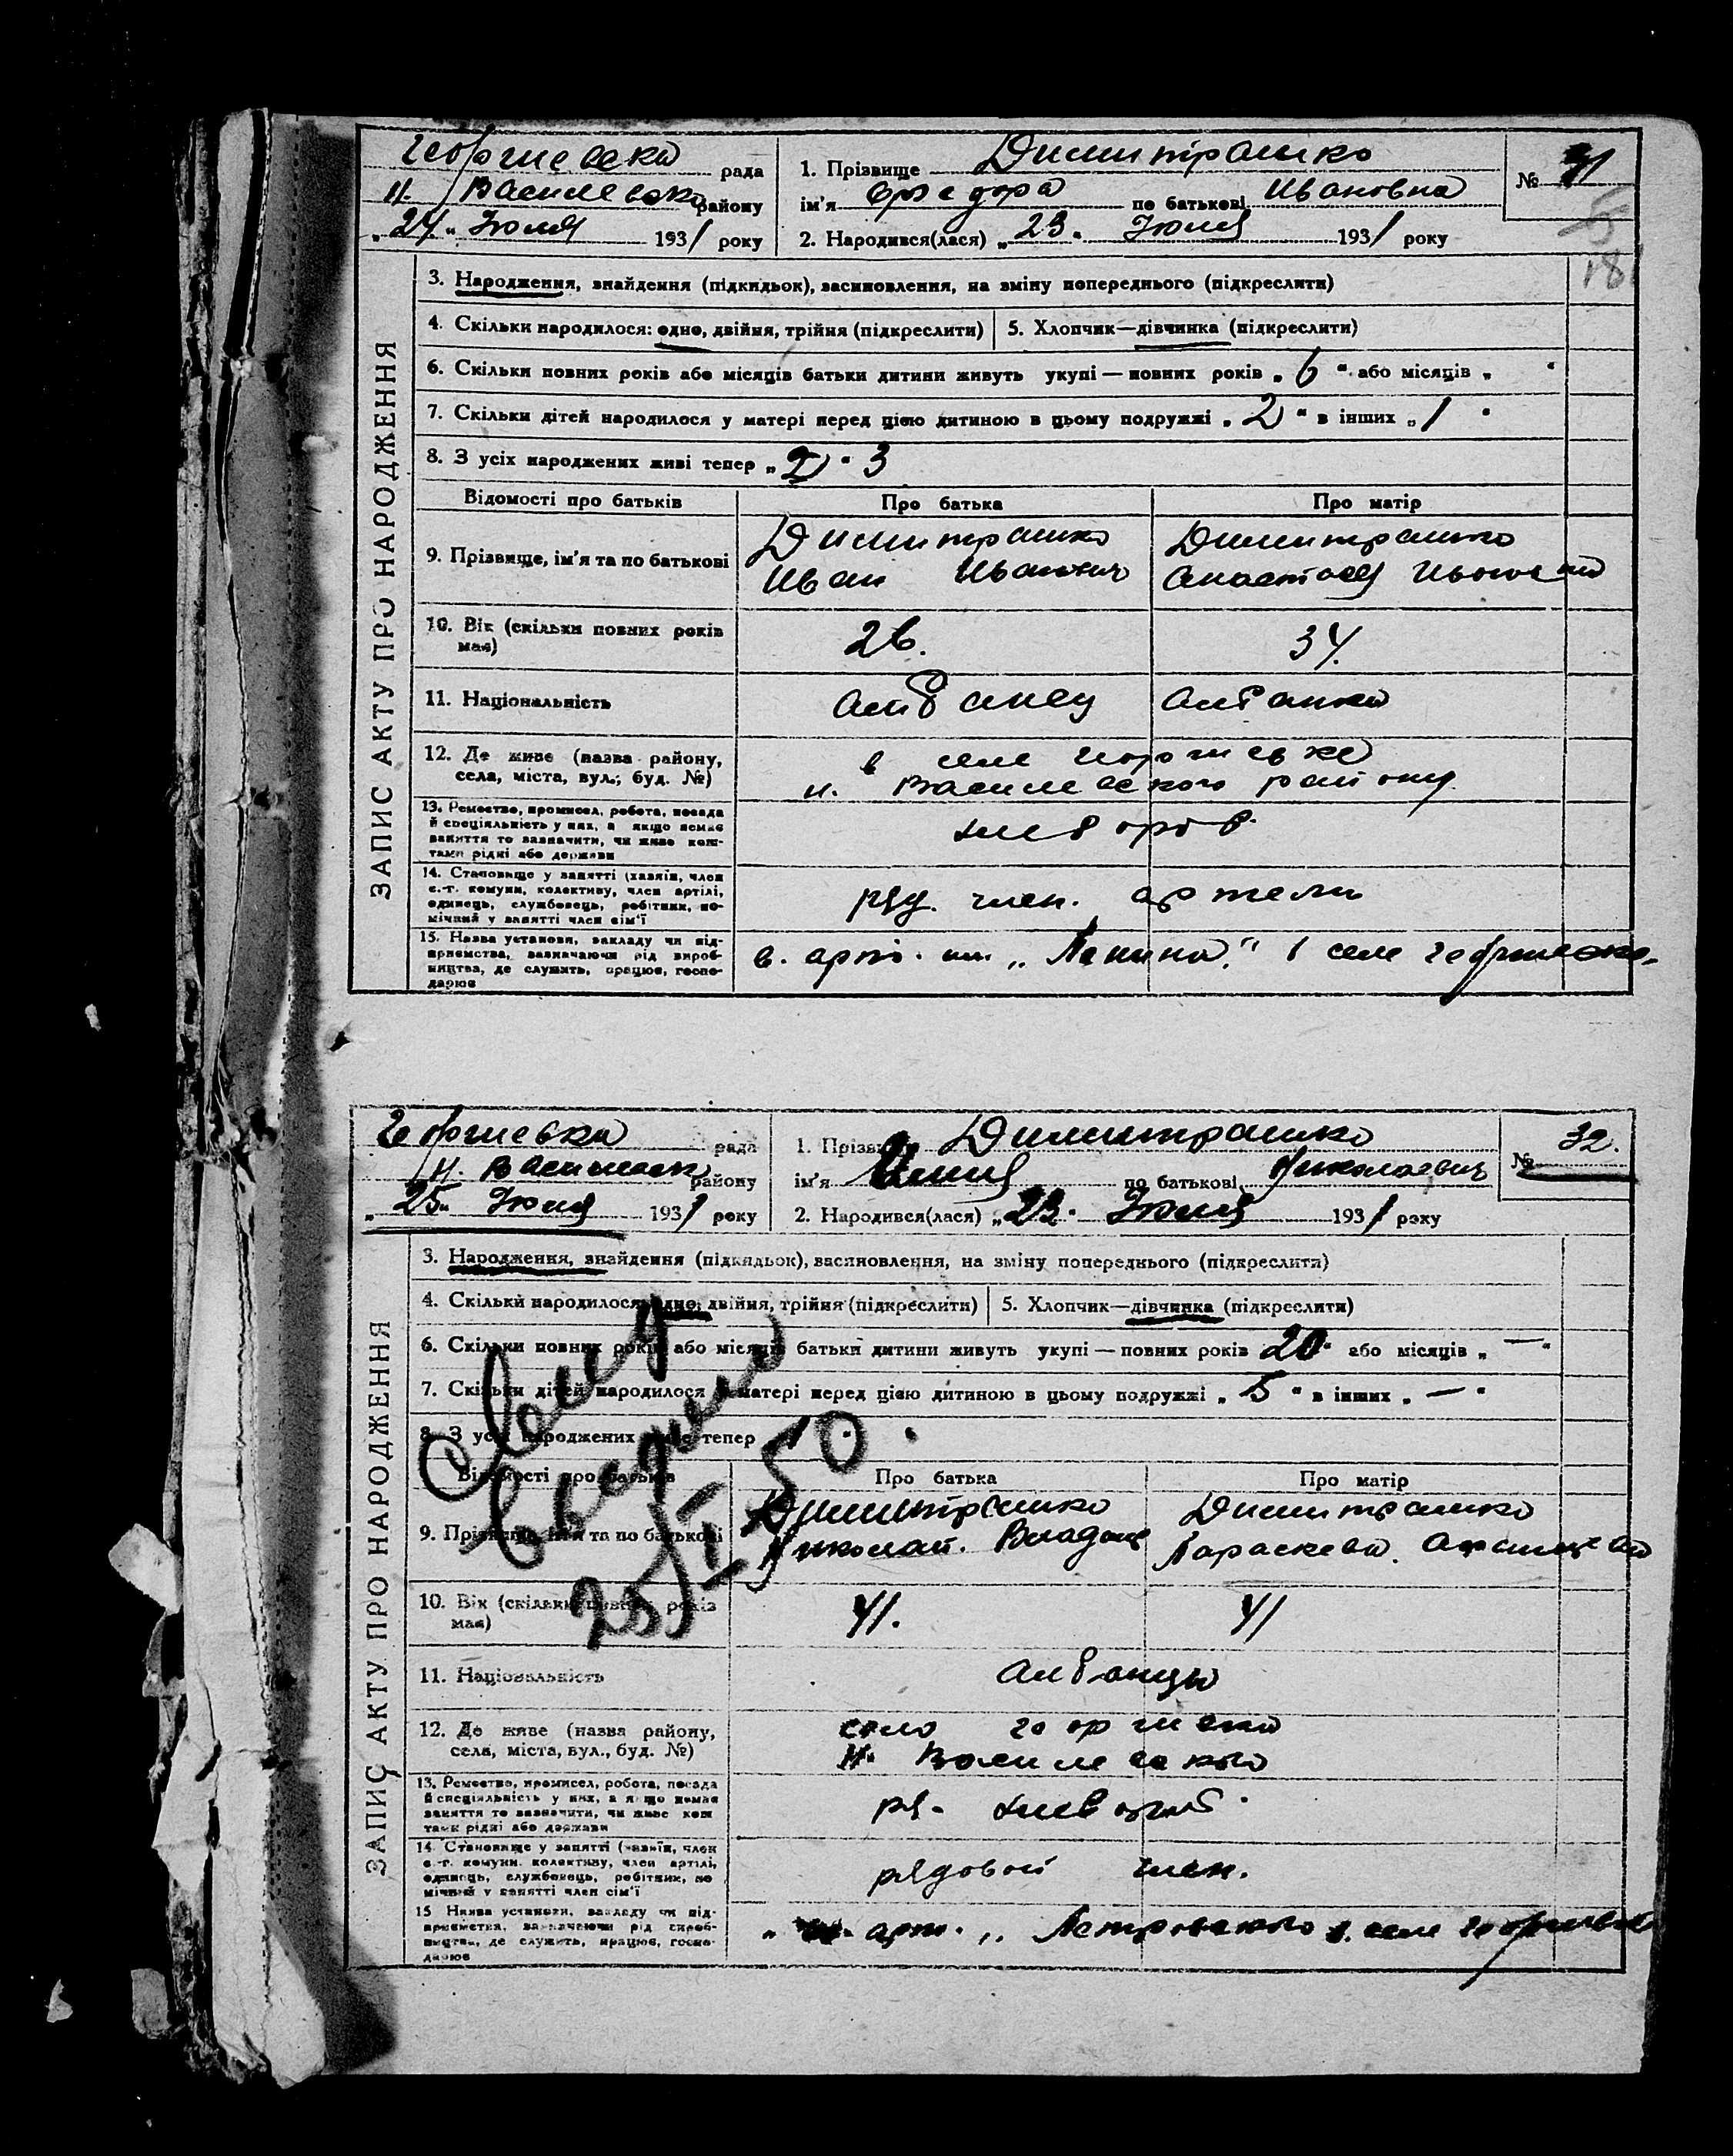 Георгиевска рада
Н. Василевско району
„24„ Июля 1931 року
1. Прізвище Димитрашко
ім'я Феодора по батькові Ивановна
2. Народився(лася) „23. Июля 1931 року
№ 31
181
ЗАПИС АКТУ ПРО НАРОДЖЕННЯ
3. Народження, знайдення (підкидьок), засиновлення, на зміну попереднього (підкреслити)
4. Скільки народилося: одно, двійня, трійня (підкреслити)
5. Хлопчик—дівчинка (підкреслити)
6. Скільки повних років або місяців батьки дитини живуть укупі — повних років „ 6 “ або місяців „ “
7. Скільки дітей народилося у матері перед цією дитиною в цьому подружжі „ 2 “ в інших „ 1 “
8. З усіх народжених живі тепер „ “ 3
Відомості про батьків Про батька Про матір
9. Прізвище, ім'я та по батькові
Димитрашко
Иван Иванович
Димитрашко
Анастасия Ивановна
10. Вік (скільки повних років має)
26.
34.
11. Національність
Албанец
Албанка
12. Де живе (назва району,
села, міста, вул., буд. №)
в селе Георгиевке
Н. Василевского району
13. Ремество, промисел, робота, посада
й спеціяльність у них, а якщо немає
заняття то зазначити, чи живе кош-
тами рідні або держави
хлебороб.
14. Становище у занятті (хазяїн, член
с.-г. комуни, колективу, член артілі,
одинець, службовець, робітник, по-
мічний у занятті член сім'ї
ряд. член. артели
15. Назва установи, закладу чи під-
приємства, зазначаючи рід вироб-
ництва, де служить, працює, госпо-
дарює
в. арт. им. „Ленина“ в селе Георгиевке.
Георгиевка рада
Н. Васильевск району
„25„ Июля 1931 року
1. Прізвище Димитрашко
ім'я по батькові Николаевич
2. Народився(лася) „23. Июля 1931 року
№ 32.
ЗАПИС АКТУ ПРО НАРОДЖЕННЯ
3. Народження, знайдення (підкидьок), засиновлення, на зміну попереднього (підкреслити)
4. Скільки народилося: одно, двійня, трійня (підкреслити)
5. Хлопчик—дівчинка (підкреслити)
6. Скільки повних років або місяців батьки дитини живуть укупі — повних років 20 “ або місяців „ — “
7. Скільки дітей народилося у матері перед цією дитиною в цьому подружжі „ 5 “ в інших „ — “
8. З усіх народжених живі тепер
Відомості про батьків Про батька Про матір
9. Прізвище, ім'я та по батькові
Димитрашко
Николай.
Димитрашко
Параскева.
10. Вік (скільки повних років має)
41.
41
11. Національність
Албанцы
12. Де живе (назва району,
села, міста, вул., буд. №)
село Георгиевка
Н. Василевского
13. Ремество, промисел, робота, посада
й спеціяльність у них, а якщо немає
заняття то зазначити, чи живе кош
тами рідні або держави
ря. хлебороб.
14. Становище у занятті (хазяїн, член
с.-г. комуни, колективу, член артілі,
одинець, службовець, робітник, по
мічний у занятті член сім'ї
рядовой член.
15 Назва установи, закладу чи під-
приємства, зазначаючи рід вироб-
ництва, де служить, працює, госпо-
дарює
арт. „ Петровского в. селе Георгиевке